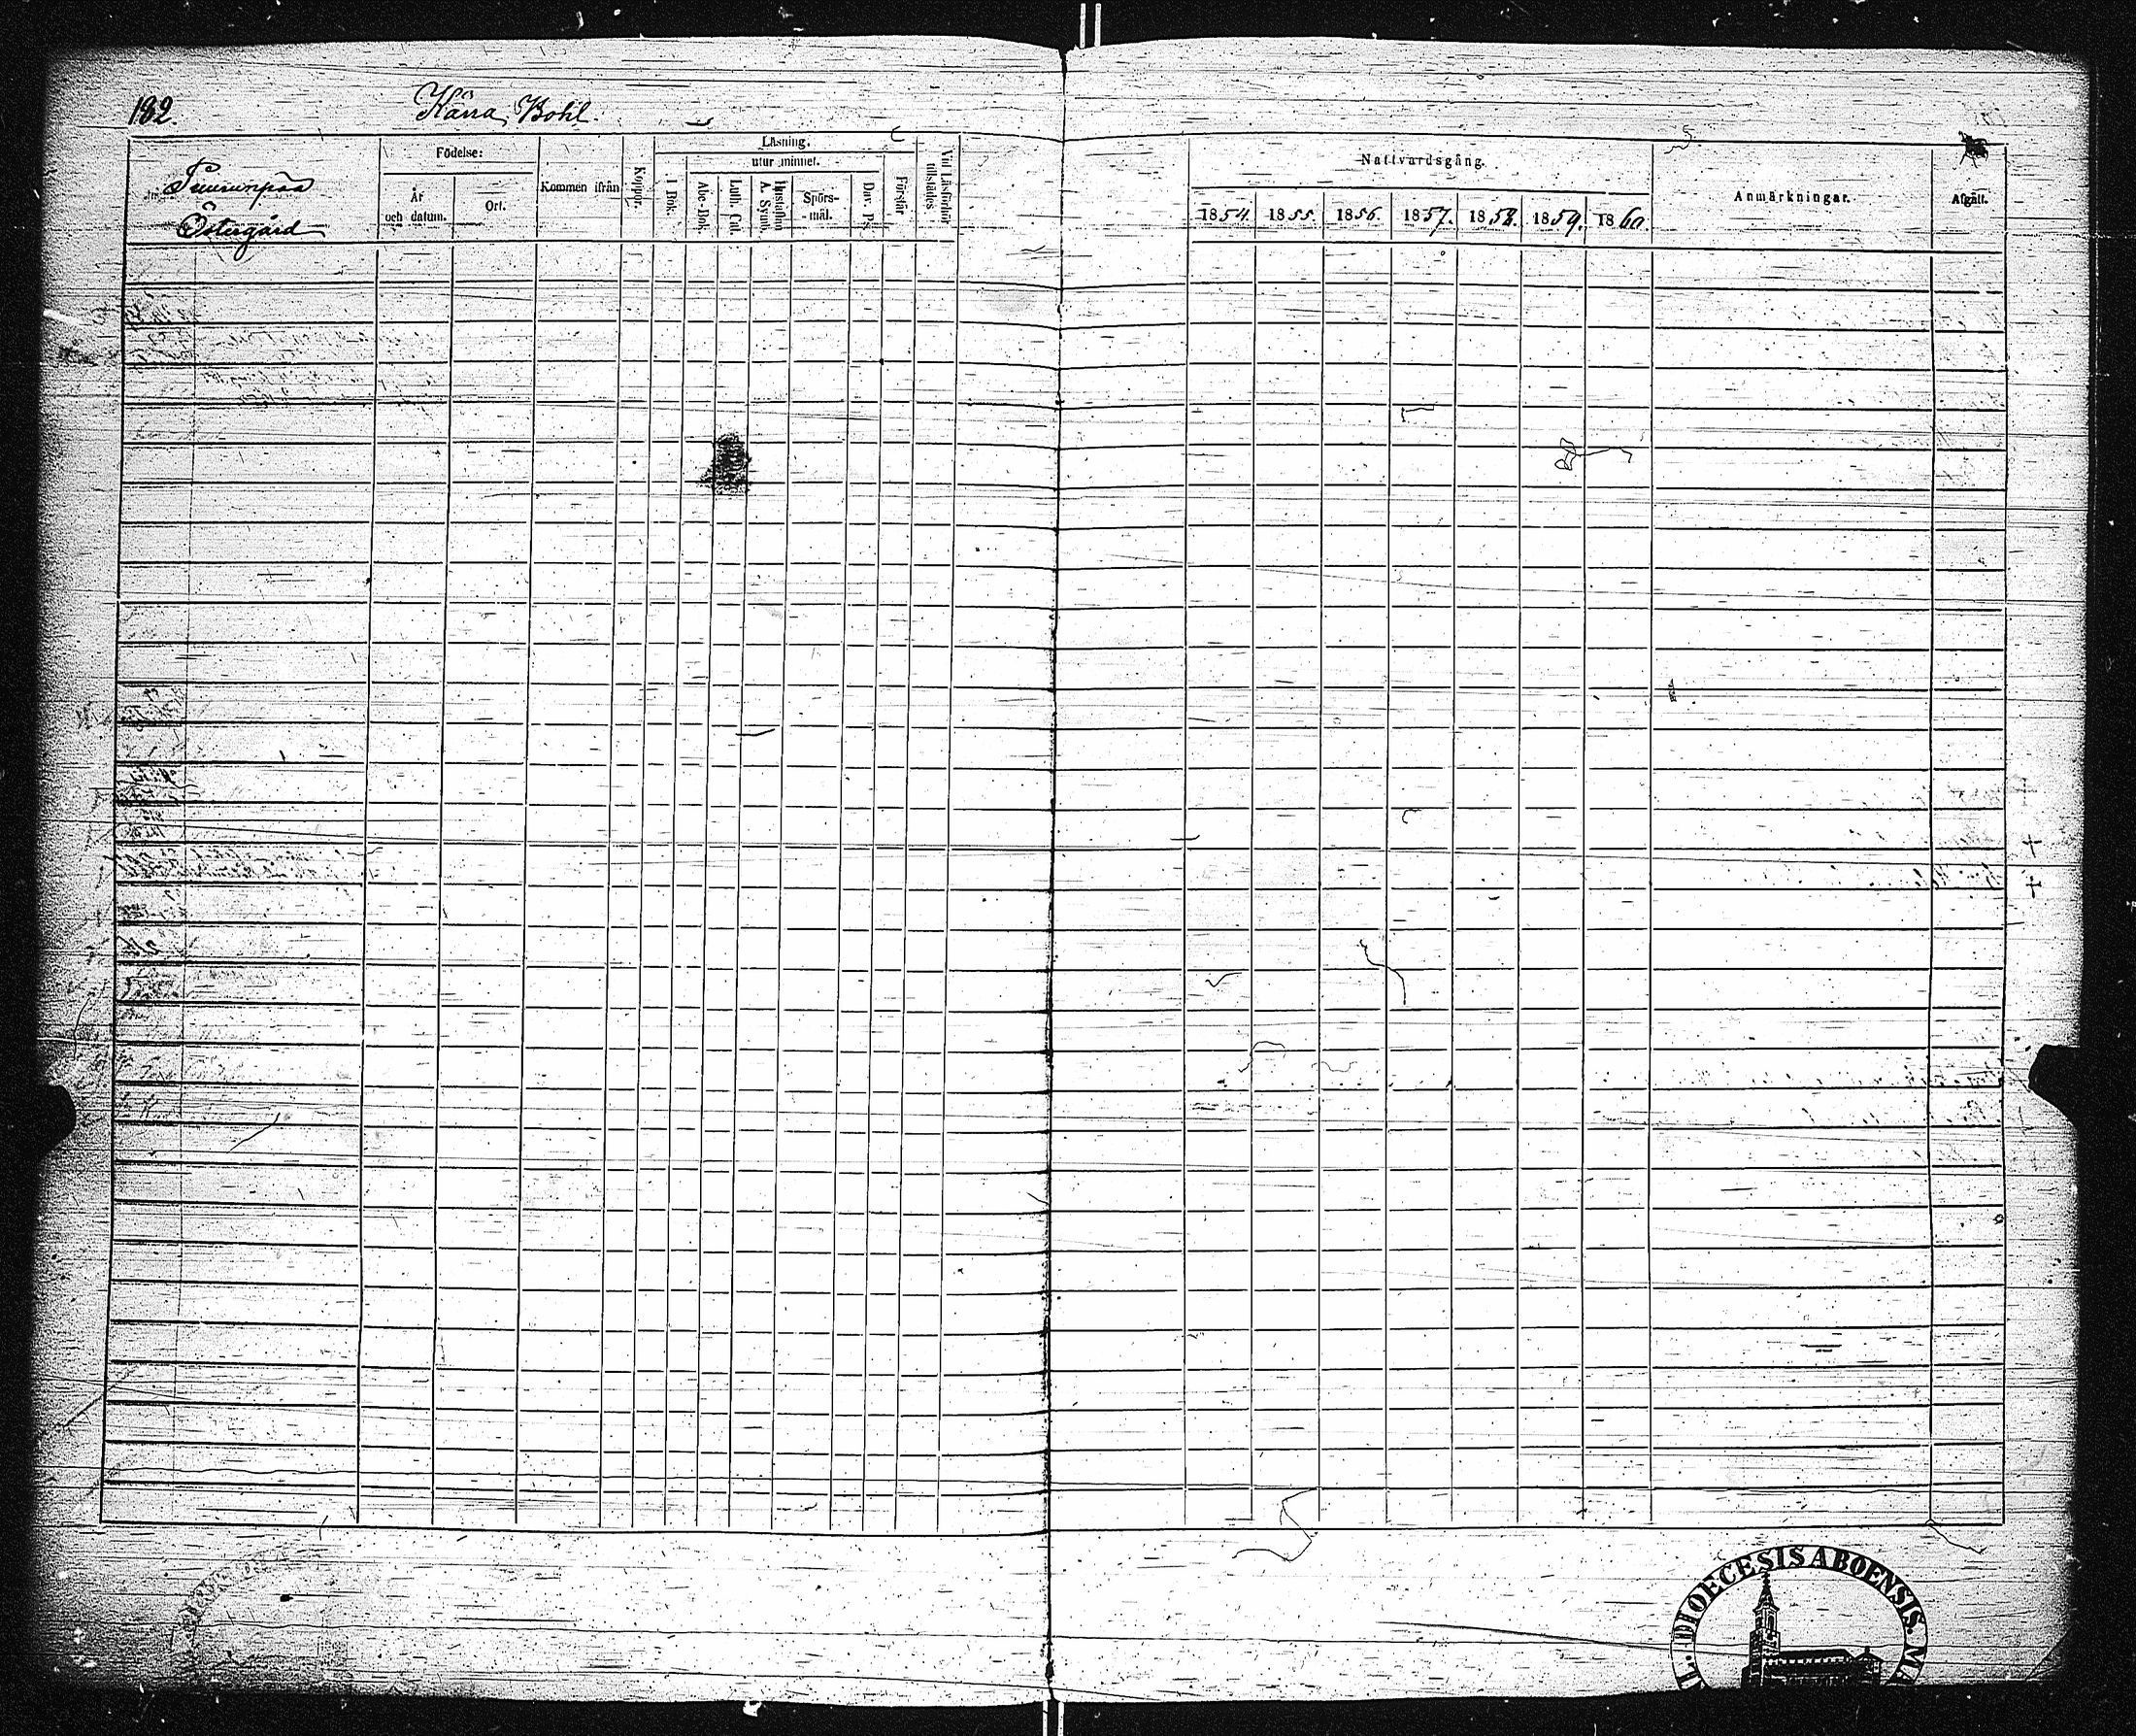 182.
Kärra Bohl.
Puurunpää
Östergård
Födelse:
År
och datum.
Ort.
Kommen ifrån
Koppor.
Läsning.
utur minnet.
I Bok.
Abc-Bok
Luth. Cat.
Hustaflan
A. Symb.
Spörs-
mål.
Dav. Ps.
Förstår
Vid Läsförhör
tillstädes
Nattvardsgång.
1854.
1855.
1856.
1857.
1858.
1859.
1860.
Anmärkningar.
Afgått.
DIOECESIS ABOENSIS.